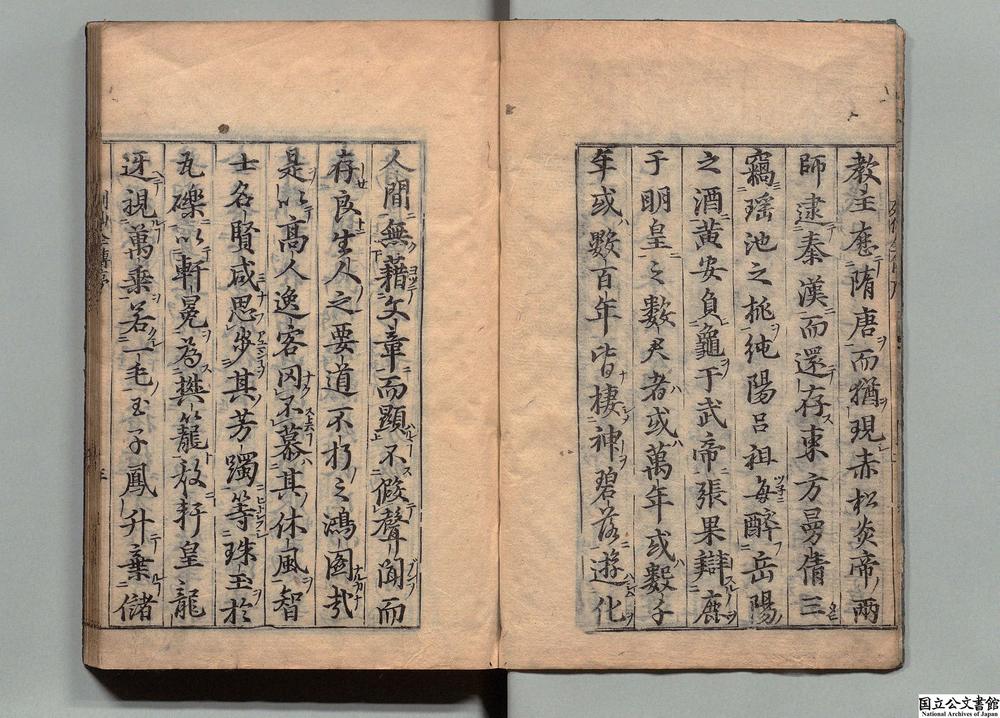 教主應隋唐而猶現赤松炎帝兩
師逮秦漢而還存東方曼倩三
竊瑤池之桃純陽呂祖每醉岳陽
之酒黃安負龜于武帝張果辯鹿
于明皇之數君者或萬年或數千
年或數百年皆棲神碧落遊化
人間無藉文章而顯不假聲聞而
存良生人之要道不朽之鴻圖哉
是以高人逸客罔不慕其休風智
士名賢咸思步其芳躅等珠玉於
瓦礫以軒冕為樊籠故軒皇龍
迓視萬乘若一毛王子鳳升棄儲
国立公文書館
National Archives of Japan